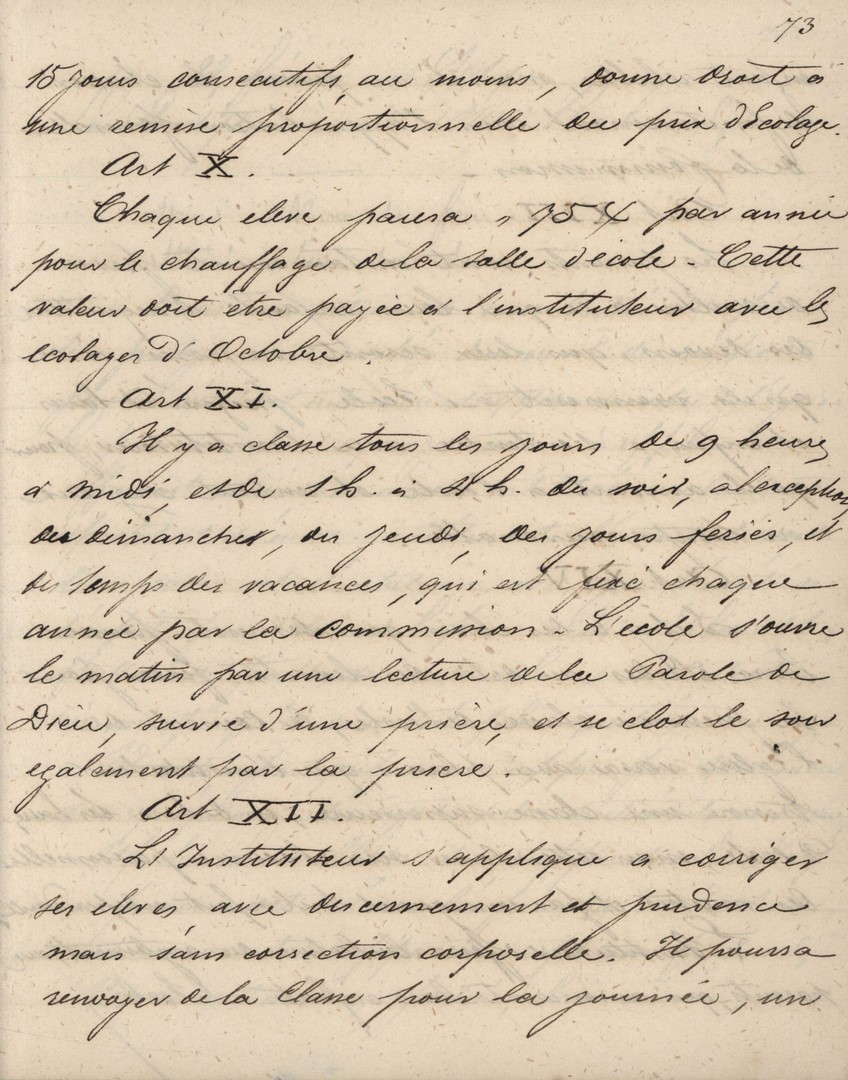 73
15 jours consecutifs, au moins, donne droit à
une remise proportionnelle du prix d'Ecolage.
Art X.
Chaque eleve paiera , 75 par année
pour le chauffage de la salle d'école - Cette
valeur doit etre payée à l'instituteur avec les
ecolages d'Octobre.
Art XI.
Il y a classe tous les jours de 9 heures
à midi, et de 1 h. à 4 h. du soir, à l'exception
des dimanches, du jeudi, des jours feriés, et
du temps des vacances, qui est fixé chaque
année par la commission - L'ecole s'ouvre
le matin par une lecture de la Parole de
Dieu, suivie d'une prière, et se clot le soir
egalement par la priere.
Art XII.
L'Instituteur s'applique à corriger
ses eleves avec discernement et prudence
mais sans correction corporelle. Il pourra
renvoyer de la Classe pour la journée, un